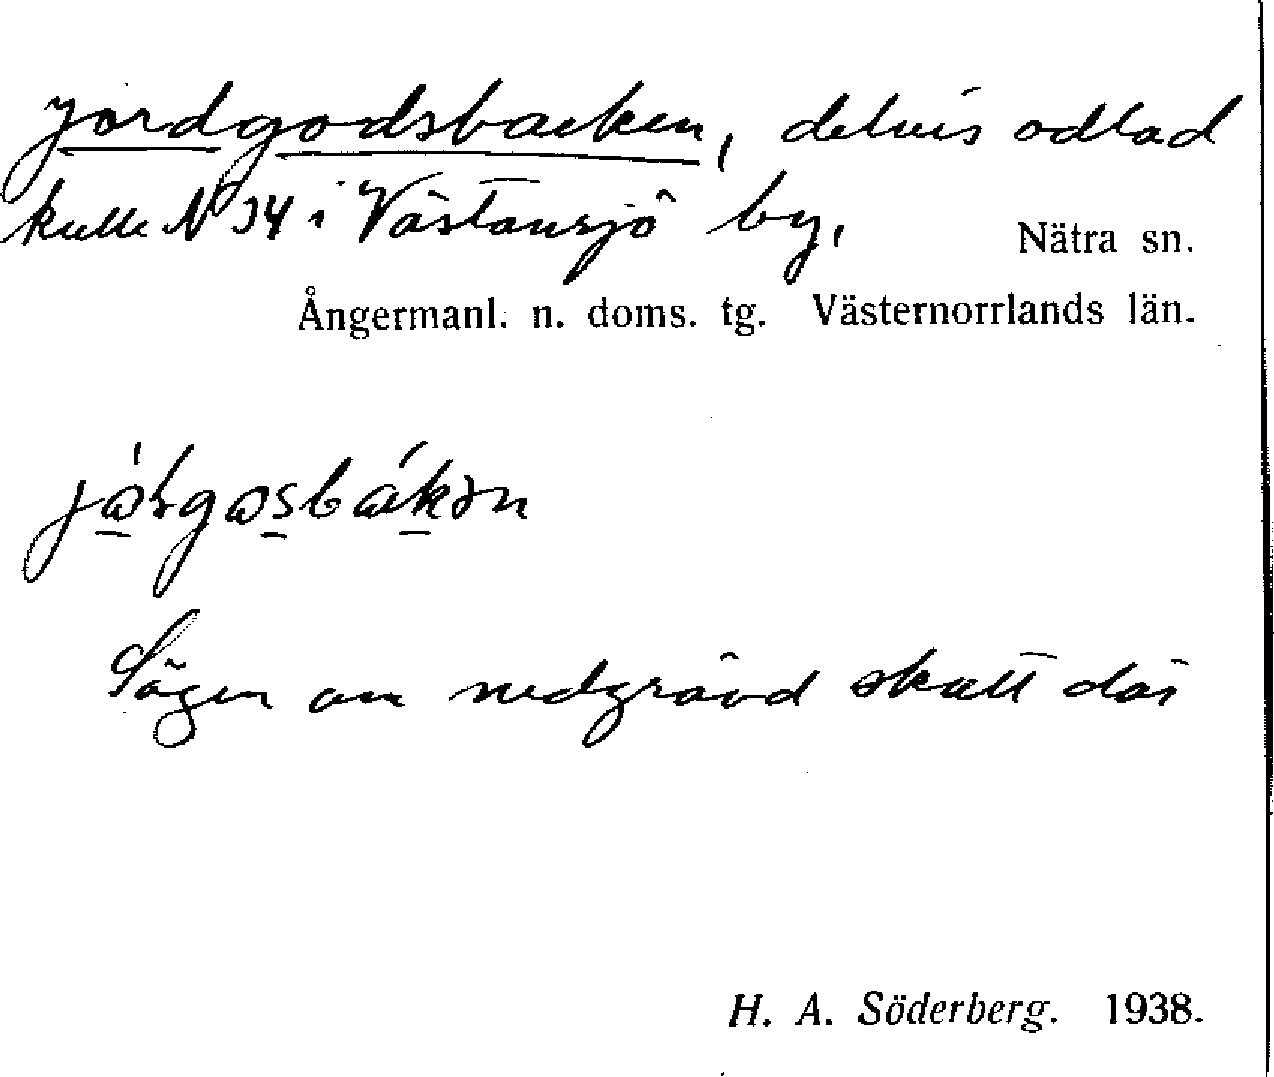 Jordgodsbacken, delvis odlad
kulle N 34 i Västansjö by,
Nätra sn.
Ångermanl. n. doms. tg. Västernorrlands län.
Sägen om nedgrävd skatt där
H. A. Söderberg. 1938.